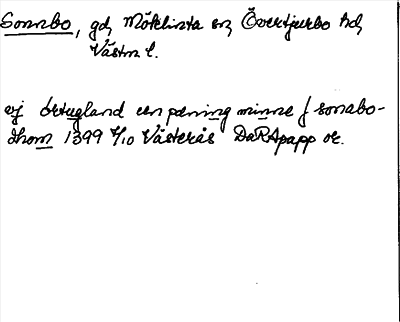 Sonnbo, gd, Möklinta sn, Övertjurbo hd,
Västm l.
ej örtugland een pæning minne j sonabo-
thom 1399 4/10 Västerås DaRApapp or.